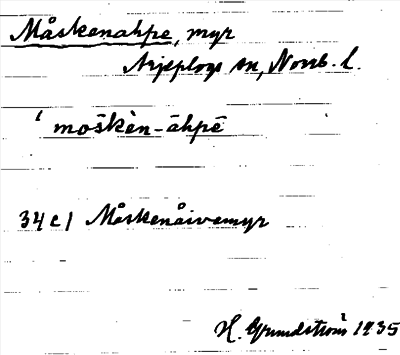 Måskenahpe, myr
Arjeplogs sn, Norrb. l.
' moskèn-āhpē
34 c 1 Måskenåivemyr
H. Grundström 1935